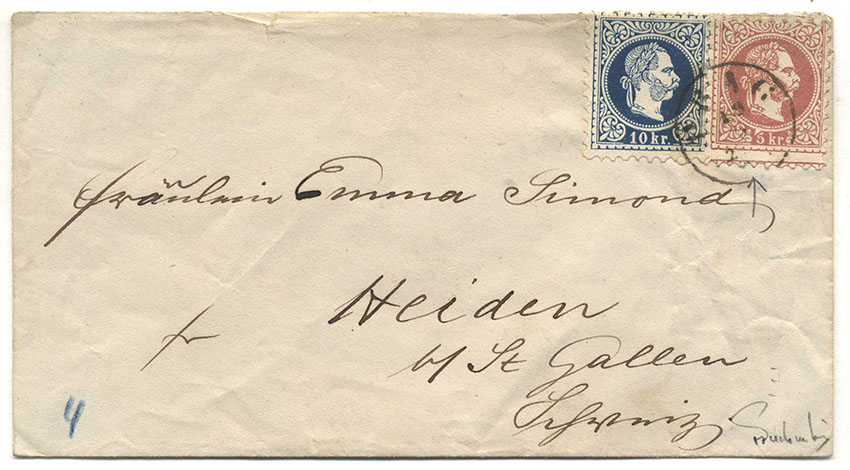 10 kr.
5 kr.
Fräulein Emma Simond
Heiden
b/ St Gallen
Schweiz
4